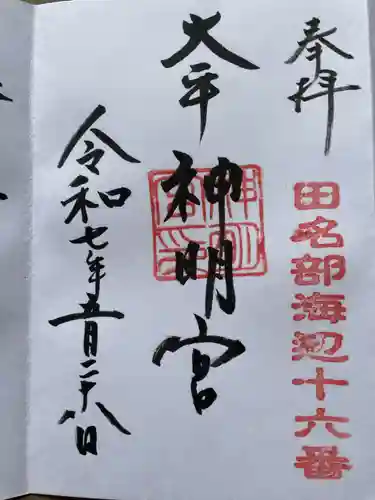 奉拝
田名部海辺十六番
大平
神明宮
令和七年五月二十八日